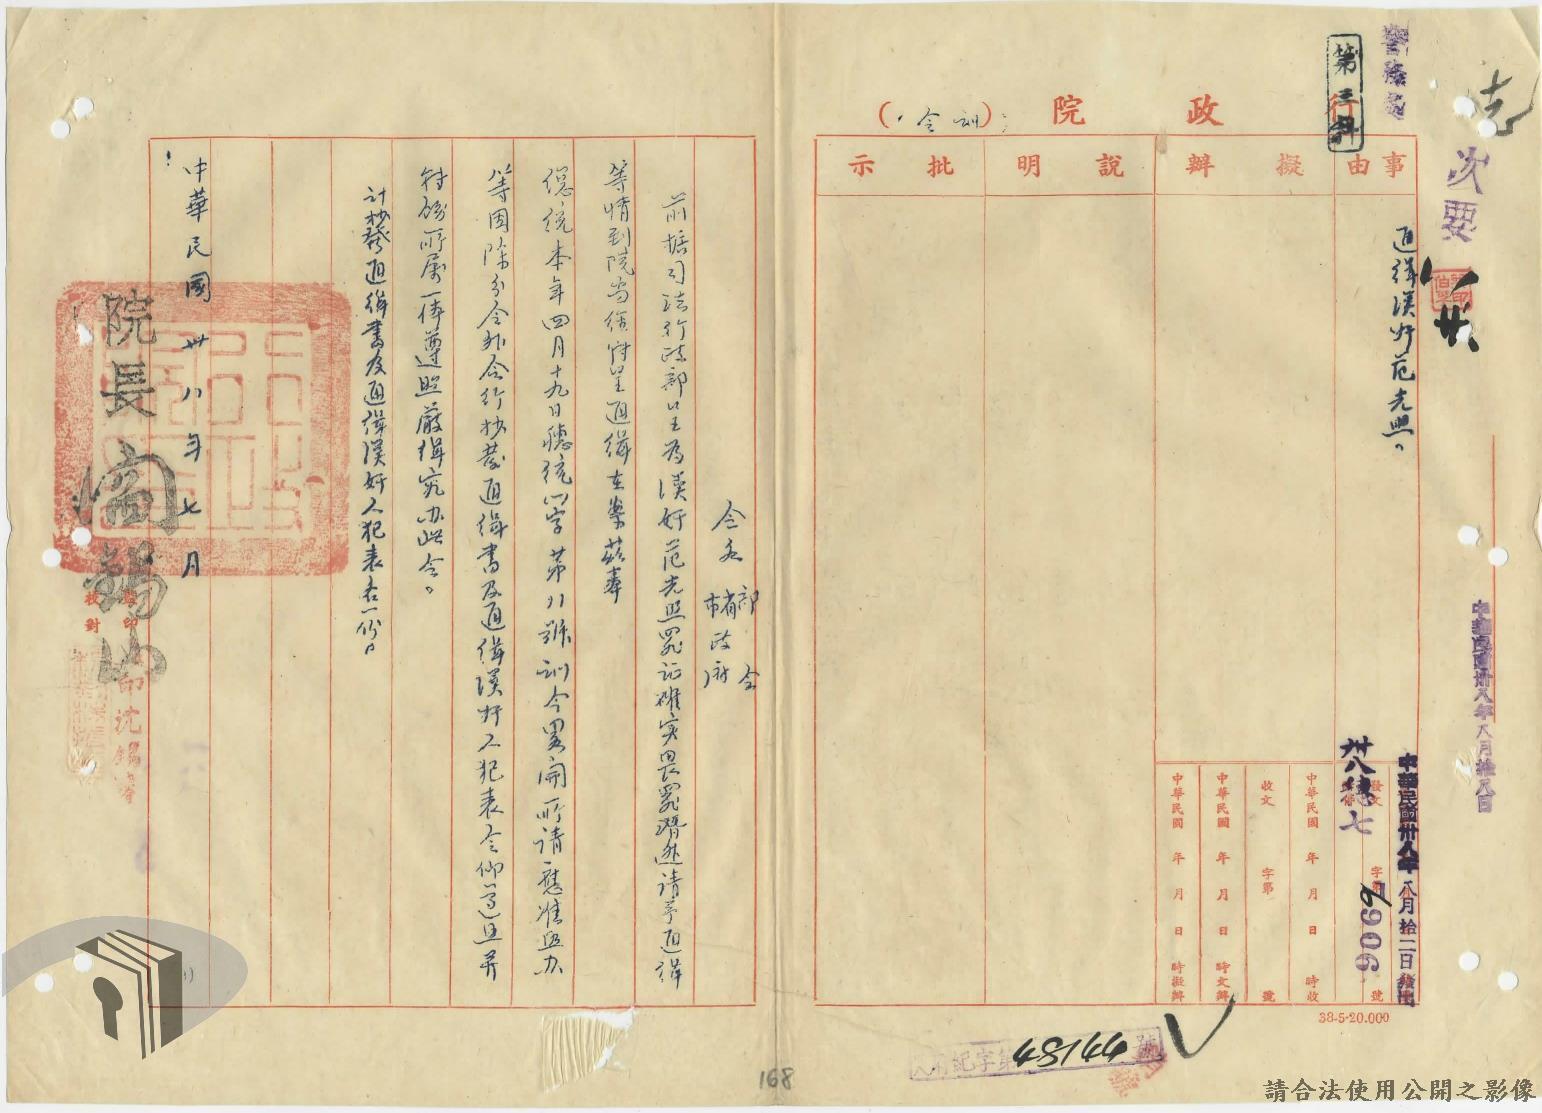 志
次要
行政院（訓令）
第三科
事由
擬辦
說明
批示
通緝漢奸范光照。
中華民國卅八年八月拾八日
中華民國卅八年八月拾二日發出
發文
字第
號
卅八穗七
中華民國 年 月 日 時收
收文 字第 號
中華民國 年 月 日 時文辦
中華民國 年 月 日 時擬辦
38-5-20.000
48144
號
令各部會
省市政府
前据司法行政部呈為漢奸范光照罪証確實畏罪潛逃請予通緝
等情到院當經府呈通緝在案茲奉
總統本年四月十九日穗統八字第八號訓令畧開所請應准照办
等因除分令外合行抄發通緝書及通緝漢奸人犯表令仰遵照并
轉飭所属一体遵照嚴緝究办此令。
計抄發通緝書及通緝漢奸人犯表各一份。
中華民國卅八年七月
院長閻錫山
監印
校對
168
請合法使用公開之影像